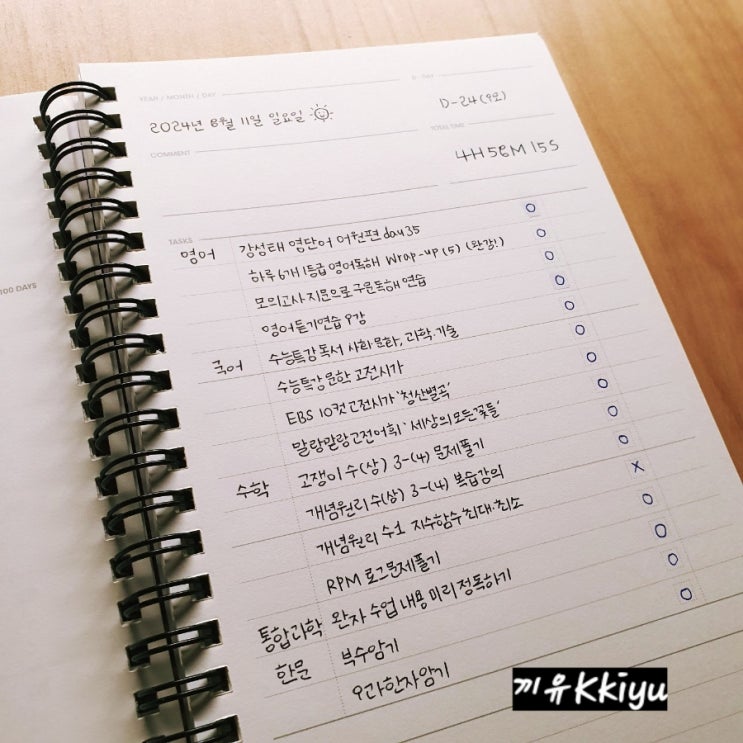 100 DAYS
YEAR / MONTH / DAY
D - DAY
2024년 8월 11일 일요일
D-24(9모)
COMMENT
TOTAL TIME
4H 58M 15S
TASKS
영어 강성태 영단어 어원편 day35 O
하루 6개 1등급 영어독해 Wrap-up (5) (완강!) O
모의고사 지문으로 구문독해 연습 O
영어듣기연습 9강 O
국어 수능특강 독서 사회·문화, 과학·기술 O
수능특강 문학 고전시가 O
EBS 10컷 고전시가 '청산별곡' O
말랑말랑고전어휘 '세상의 모든 꽃들' O
수학 고쟁이 수(상) 3-(4) 문제풀기 O
개념원리 수(상) 3-(4) 복습강의 O
개념원리 수1 지수함수 최대·최소 X
RPM 로그 문제풀기 O
통합과학 완자 수업 내용 미리 정독하기 O
한문 부수암기 O
9과 한자암기 O
끼유Kkiyu